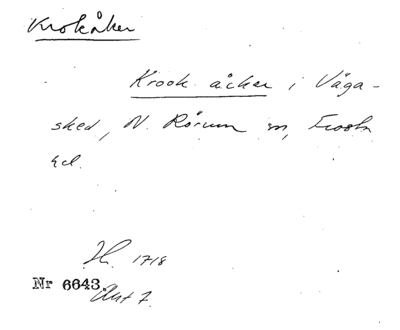 Krokåker
Krook åcker i Våga-
sked, N. Rörum sn, Frosta
hd.
1718
Nr 6643
Akt 7.